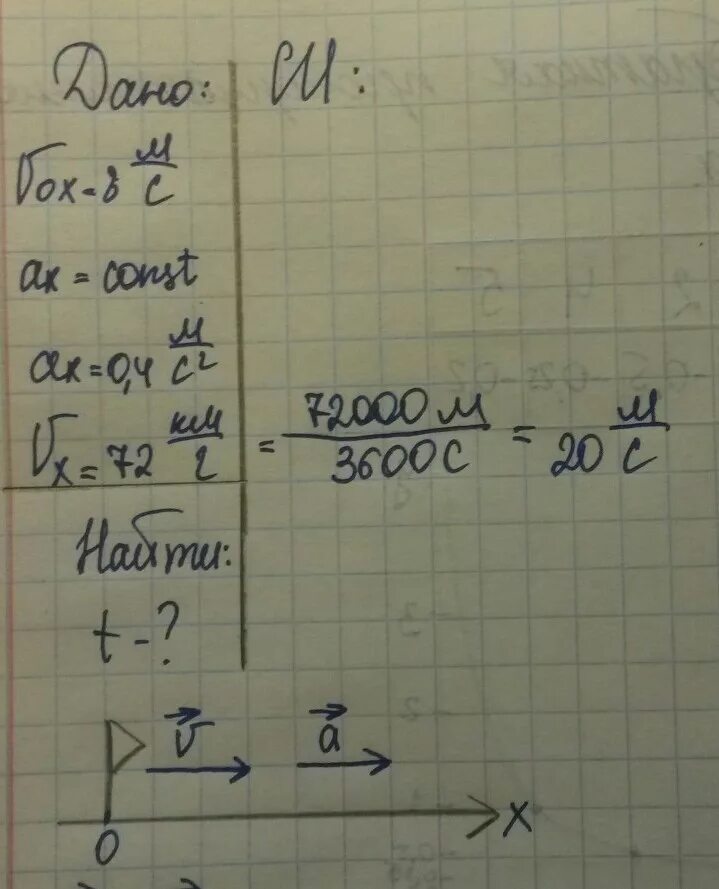 Дано: СИ:
v₀ₓ = 8 м/с
aₓ = const
aₓ = 0,4 м/с²
vₓ = 72 км/г = 72000 м/3600 с = 20 м/с
Найти:
t - ?
v⃗ a⃗
0 X